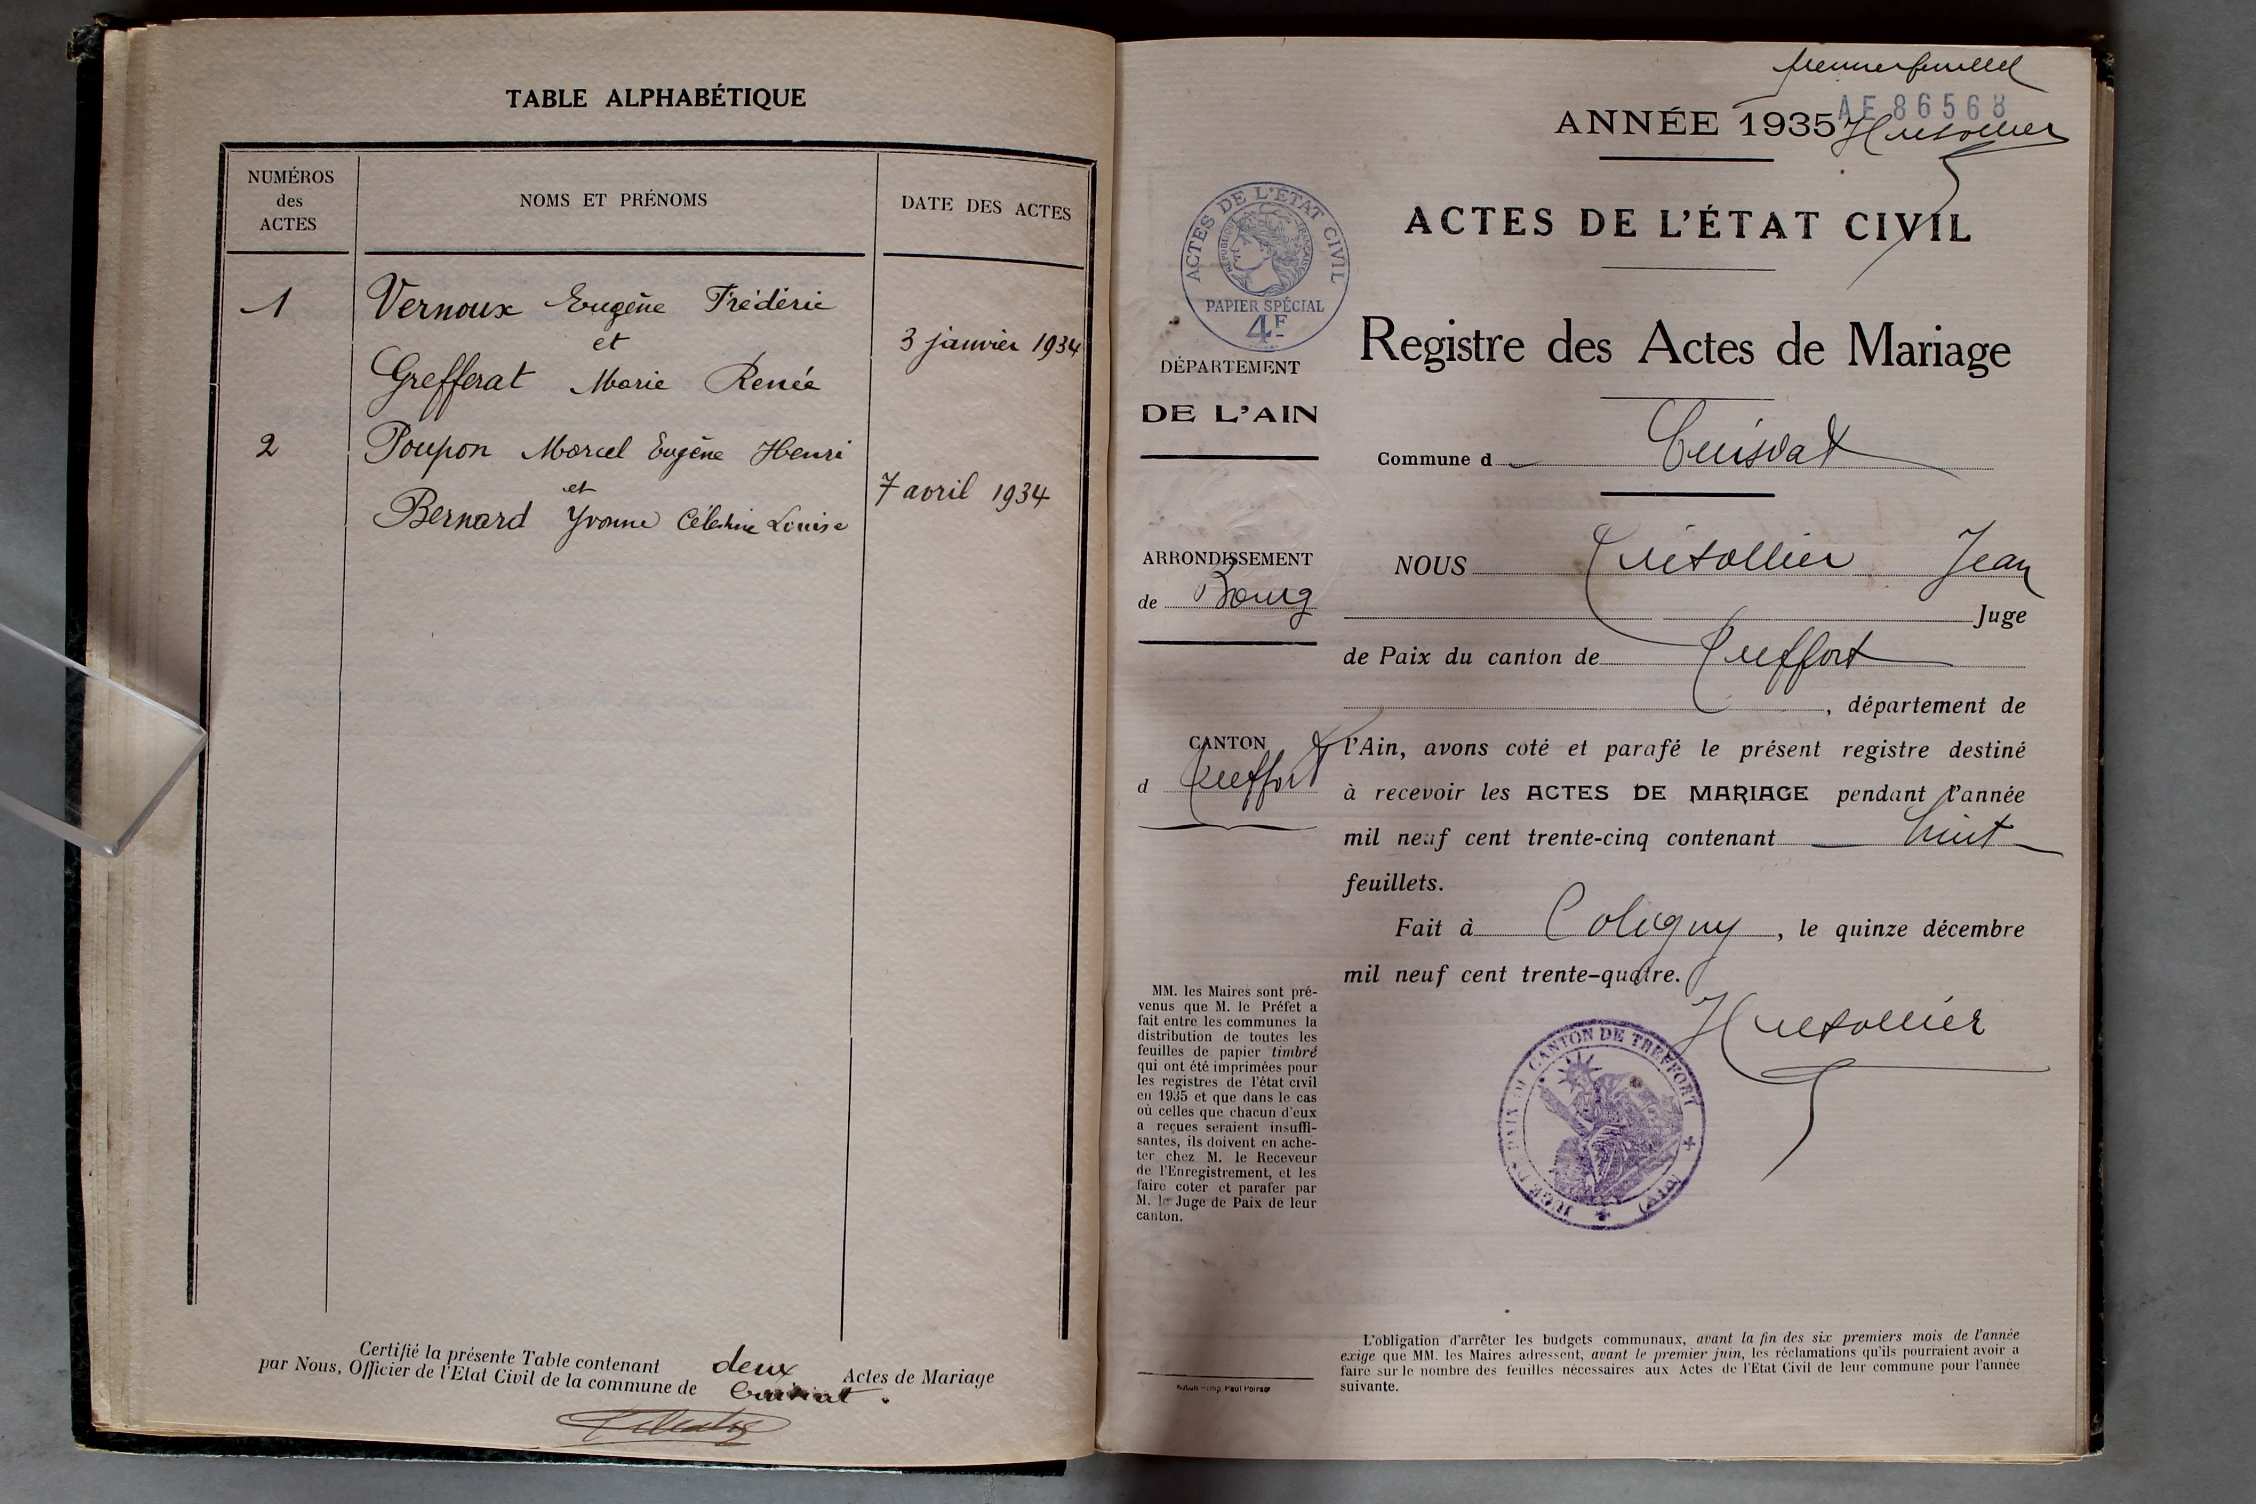 TABLE ALPHABÉTIQUE
NUMÉROS
des
ACTES
NOMS ET PRÉNOMS
DATE DES ACTES
1 Vernoux Eugène Frédéric
et
3 janvier 1934
Grefferat Marie Renée
2 Poupon Marcel Eugène Henri
et
7 avril 1934
Bernard Yvonne Célestine Louise
Certifié la présente Table contenant deux Actes de Mariage
par Nous, Officier de l'Etat Civil de la commune de Cuisiat.
premier feuillet
AE 86568
ANNÉE 1935
ACTES DE L'ÉTAT CIVIL
ACTES DE L'ÉTAT CIVIL
RÉPUBLIQUE FRANÇAISE
PAPIER SPÉCIAL
4F
Registre des Actes de Mariage
DÉPARTEMENT
DE L'AIN
Commune d Cuisiat
ARRONDISSEMENT
de Bourg
NOUS Jean
Juge
de Paix du canton de Treffort
, département de
CANTON
d Treffort
l'Ain, avons coté et parafé le présent registre destiné
à recevoir les ACTES DE MARIAGE pendant l'année
mil neuf cent trente-cinq contenant huit
feuillets.
Fait à Coligny, le quinze décembre
mil neuf cent trente-quatre.
MM. les Maires sont pré-
venus que M. le Préfet a
fait entre les communes la
distribution de toutes les
feuilles de papier timbré
qui ont été imprimées pour
les registres de l'état civil
en 1935 et que dans le cas
où celles que chacun d'eux
a reçues seraient insuffi-
santes, ils doivent en ache-
ter chez M. le Receveur
de l'Enregistrement, et les
faire coter et parafer par
M. le Juge de Paix de leur
canton.
JUGE DE PAIX DU CANTON DE TREFFORT
(AIN)
L'obligation d'arrêter les budgets communaux, avant la fin des six premiers mois de l'année
exige que MM. les Maires adressent, avant le premier juin, les réclamations qu'ils pourraient avoir a
faire sur le nombre des feuilles nécessaires aux Actes de l'Etat Civil de leur commune pour l'année
suivante.